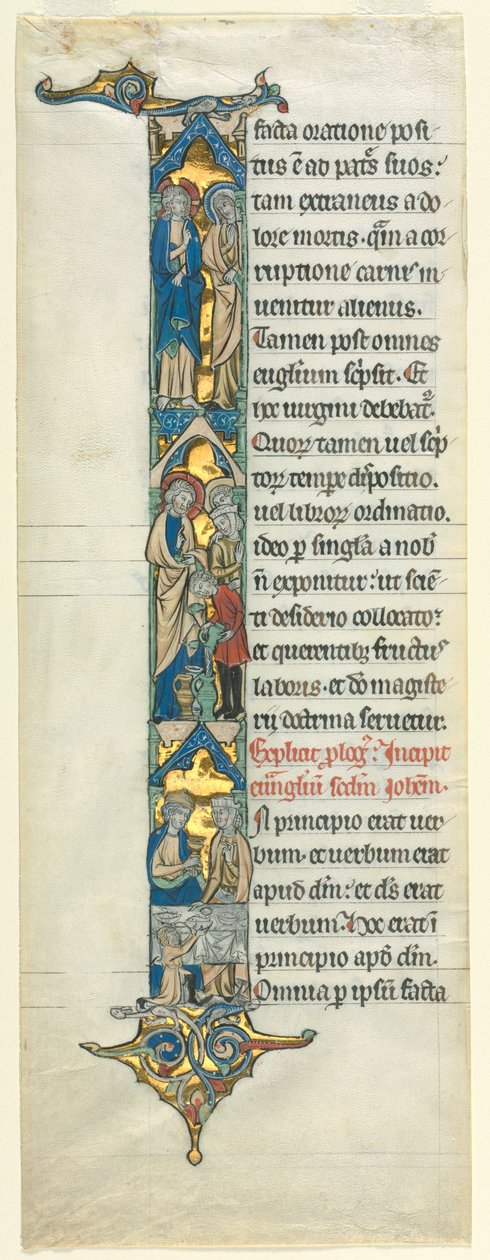 facta oratione posi
tus ē ad patͣs suos:
tam extraneus a do
lore mortis. qͣm a cor
ruptione carnis in
uenitur alienus.
Tamen post omnes
euglium scͥpsit. Et
hoc uirgini debebatᷣ.
Quoꝝ tamen uel scͥp
toꝝ tempꝫ dispositio.
uel libroꝝ ordinatio.
ideo ꝑ singla a nob
n̄ exponitur: ut sciē
ti desiderio collocato:
et querentibꝫ fructus
laboris. et dō magiste
rii doctrina seruetur.
Explicit ꝓlogᷣ. Incipit
euūgliū scdm̄ Johem̄.
N principio erat uer
bum. et uerbum erat
apud dm̄: et ds̄ erat
uerbum. hoc erat ī
principio apd̄ dm̄.
Omnia ꝑ ipsū facta